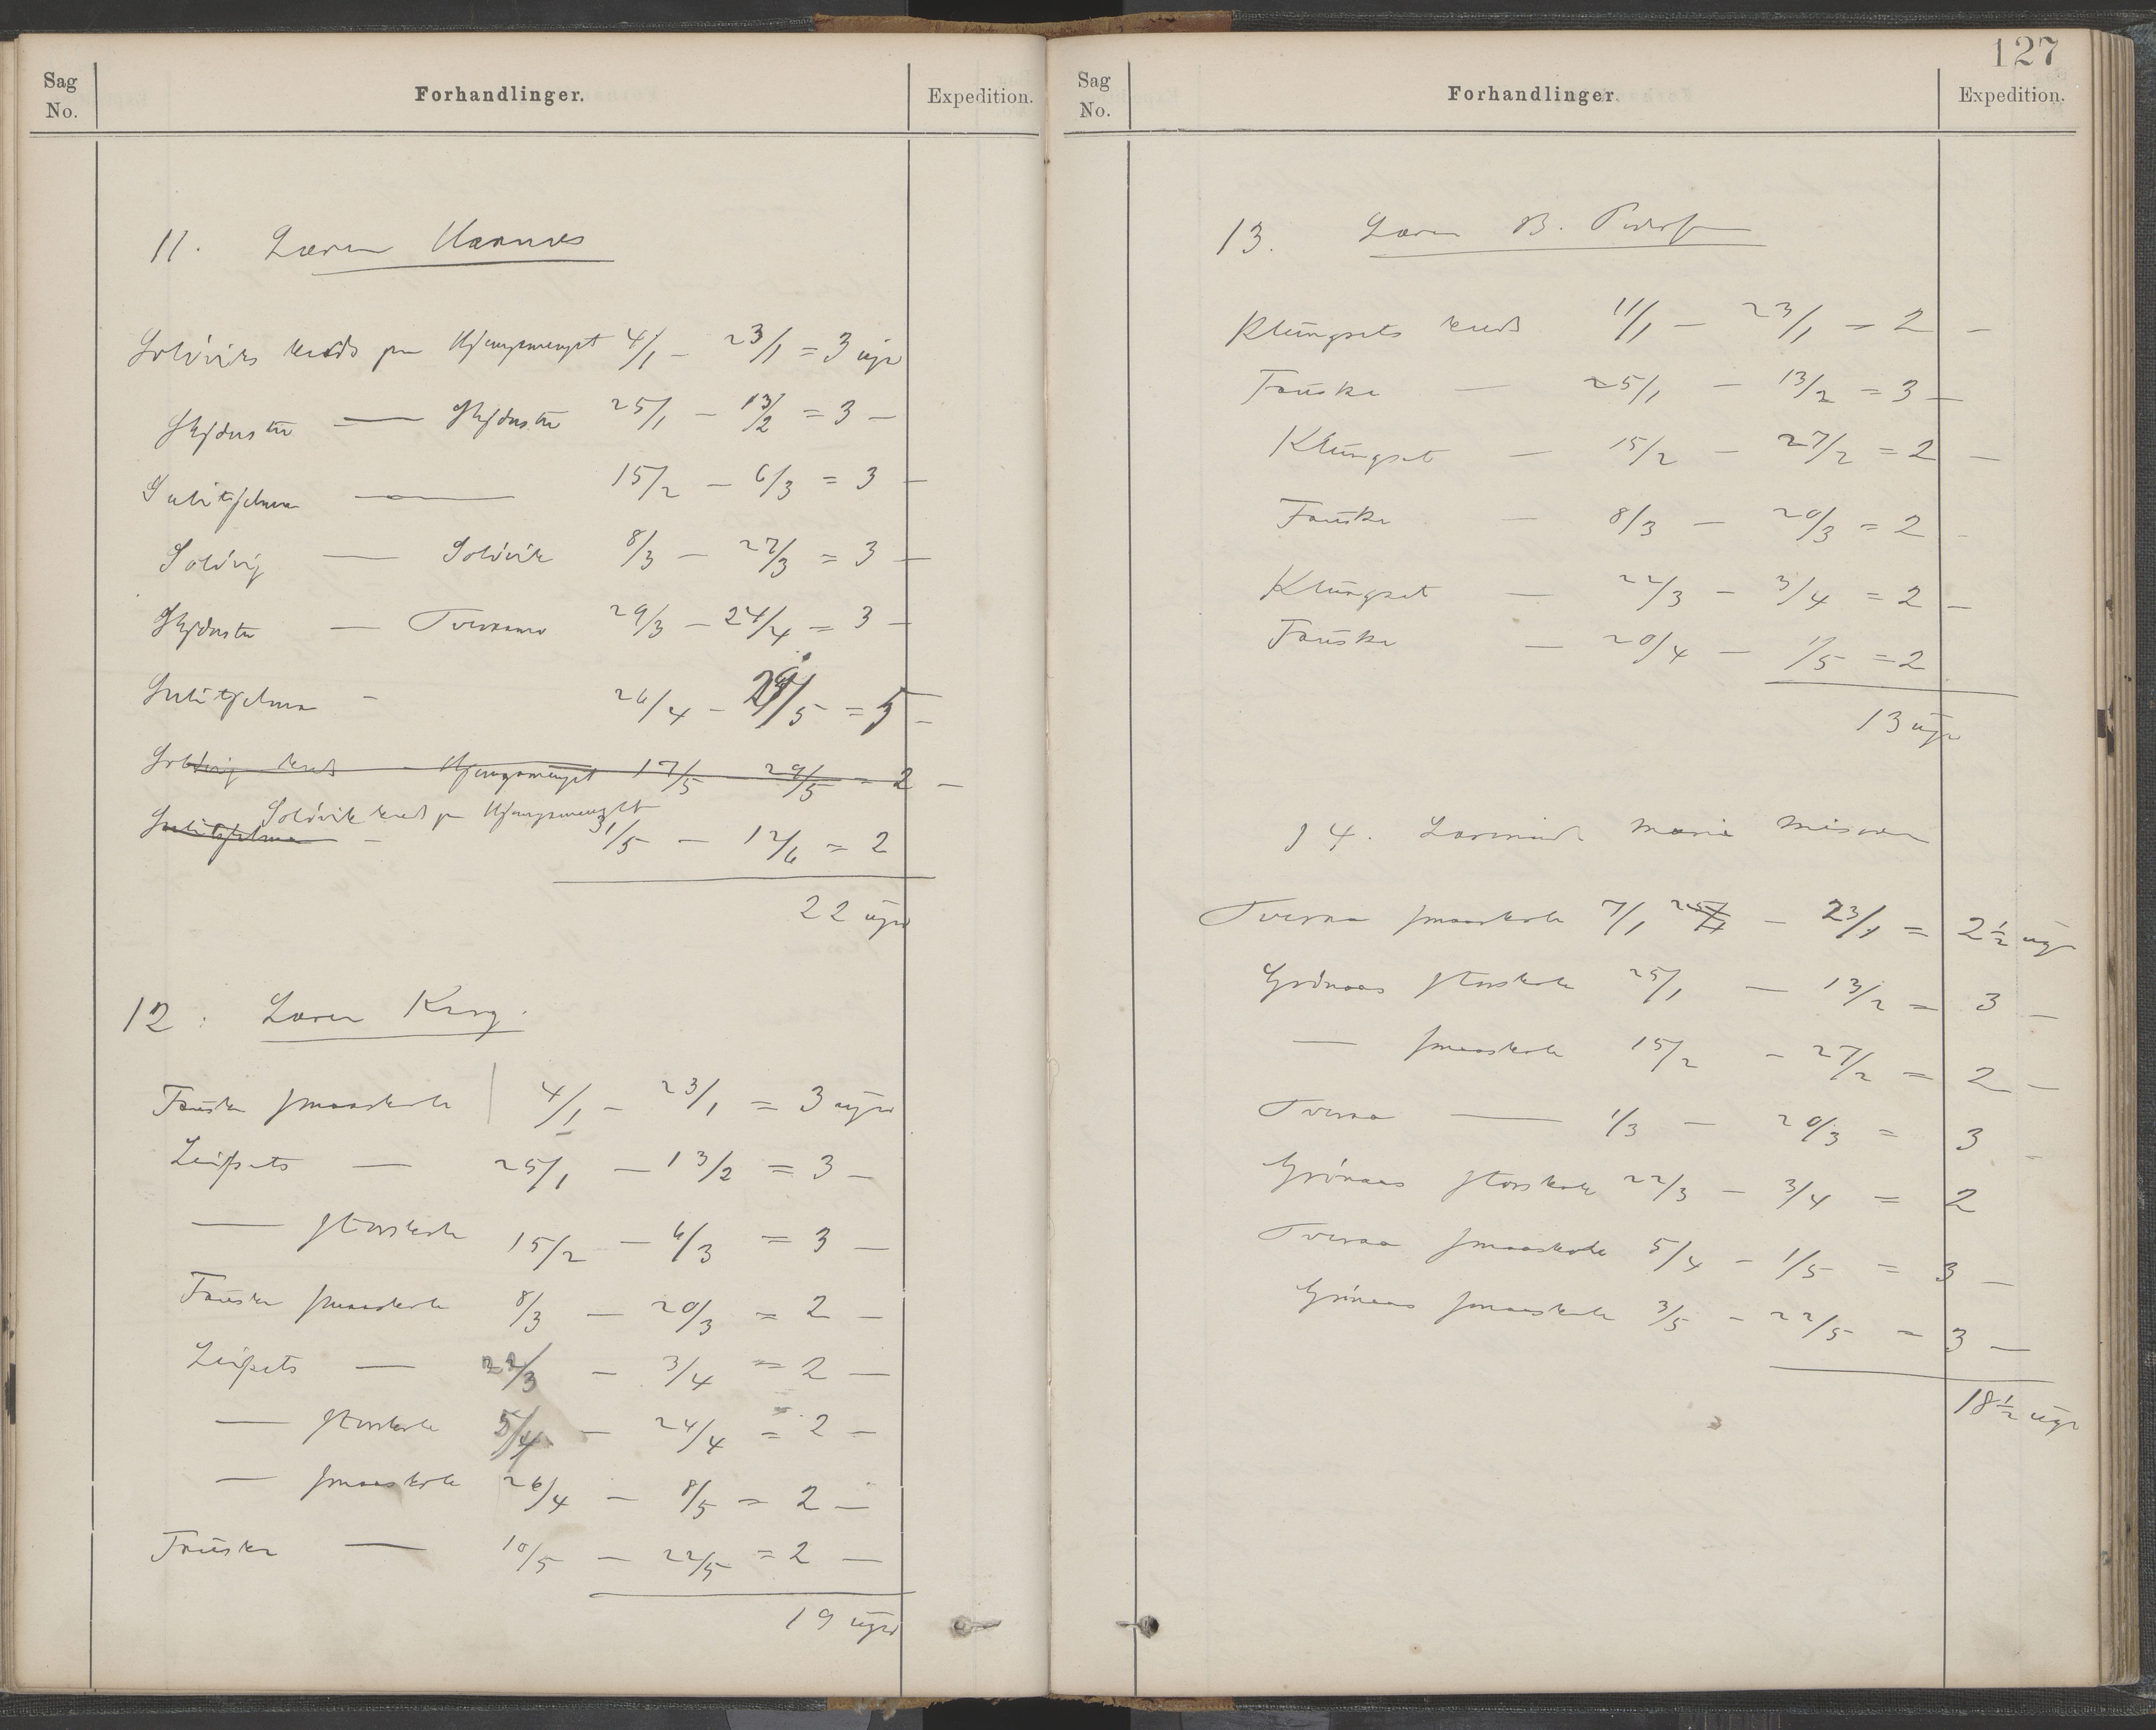 Sag No.
Forhandlinger.
Expedition.
11. Lærer Hannes
Solviks kreds paa 4/1 - 23/1 = 3 uger
25/1 - 13/2 = 3 —
Sulitjelma — 15/2 - 6/3 = 3 —
Solvig — Solvik 8/3 - 27/3 = 3 —
29/3 - 24/4 = 3 —
Sulitjelma - 26/4 - 29/5 = 5 —
Solvig kreds - 17/5 29/5 = 2 —
Solvik kreds paa
Sulitjelma - 31/5 - 12/6 = 2
22 uger
12. Lærer Krog.
Fauske smaaskole 4/1 - 23/1 = 3 uger
Leifsets — 25/1 - 13/2 = 3 —
— storskole 15/2 - 6/3 = 3 —
Fauske smaaskole 8/3 - 20/3 = 2 —
Leifsets — 22/3 - 3/4 = 2 —
— storskole 5/4 - 24/4 = 2 —
— smaaskole 26/4 - 8/5 = 2 —
Fauske — 10/5 - 22/5 = 2 —
19 uger
127
Sag No.
Forhandlinger.
Expedition.
13. Lærer B. Pedersen
Klungsets kreds 11/1 - 23/1 = 2 —
Fauske — 25/1 - 13/2 = 3 —
Klungset — 15/2 - 27/2 = 2 —
Fauske — 8/3 - 20/3 = 2 -
Klungset — 22/3 - 3/4 = 2 —
Fauske — 20/4 - 1/5 = 2
13 uger
14. Lærerinde Marie Misvær
Tveraa smaaskole 7/1 25/1 - 23/1 = 2 1/2 uge
Grønaas storskole 25/1 - 13/2 = 3 —
— smaaskole 15/2 - 27/2 = 2 —
Tveraa — 1/3 - 20/3 = 3 -
Grønaas storskole 22/3 - 3/4 = 2
Tveraa smaaskole 5/4 - 1/5 = 3 —
Grønaas smaaskole 3/5 - 22/5 = 3 —
18 1/2 uge